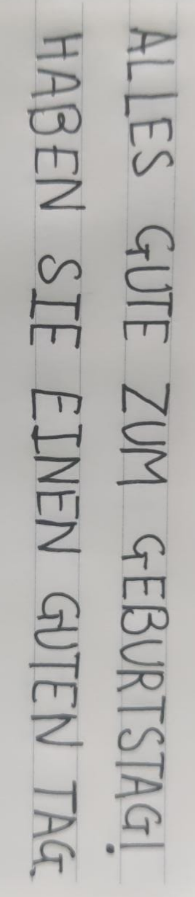 ALLES GUTE ZUM GEBURTSTAG!
HABEN SIE EINEN GUTEN TAG.